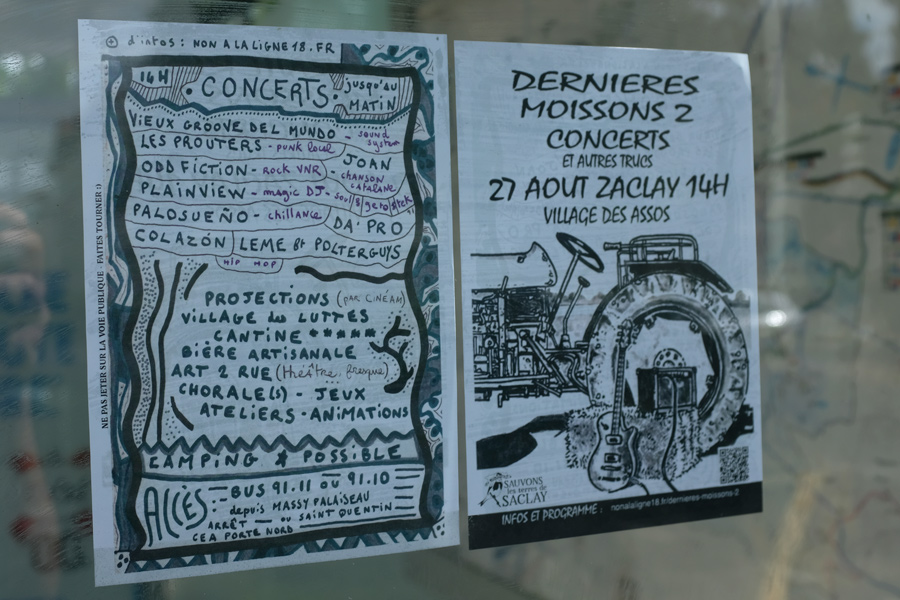 ⊕ d'infos : NON A LA LIGNE 18.FR
14H
CONCERTS
jusqu'au
MATIN
VIEUX GROOVE DEL MUNDO - sound system
LES PROUTERS - punk local
ODD FICTION - rock VNR
JOAN - chanson catalane
PLAINVIEW - magic DJ - soul
PALOSUEÑO - chillance
DA'PRO
COLAZÓN
LEME Et POLTERGUYS
HIP HOP
PROJECTIONS (PAR CINÉAM)
VILLAGE des LUTTES
CANTINE *****
BIÈRE ARTISANALE
ART 2 RUE (théâtre, fresque)
CHORALE(s) - JEUX
ATELIERS - ANIMATIONS
CAMPING * POSSIBLE
ACCÈS:
BUS 91.11 OU 91.10
depuis MASSY PALAISEAU
ARRÊT — OU SAINT QUENTIN
CEA PORTE NORD
NE PAS JETER SUR LA VOIE PUBLIQUE - FAITES TOURNER :)
DERNIERES
MOISSONS 2
CONCERTS
ET AUTRES TRUCS
27 AOUT ZACLAY 14H
VILLAGE DES ASSOS
SAUVONS
les terres de
SACLAY
INFOS ET PROGRAMME : nonalaligne18.fr/dernieres-moissons-2